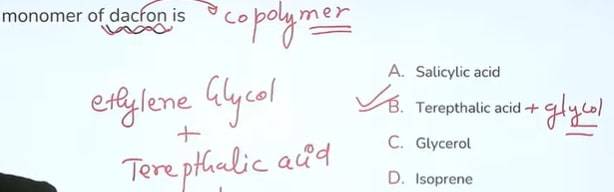 monomer of dacron is copolymer
A. Salicylic acid
ethylene Glycol
B. Terepthalic acid + glycol
+
C. Glycerol
Terepthalic acid
D. Isoprene